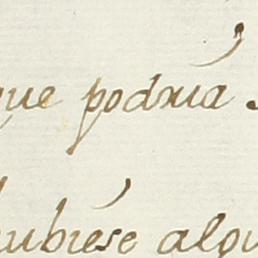 que podria
hubiése algu